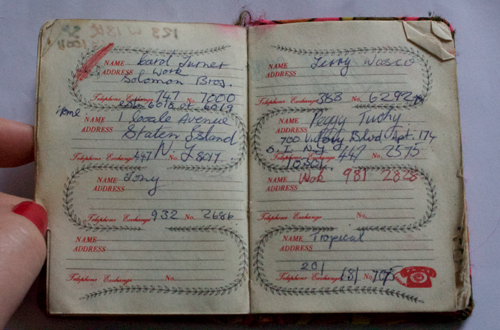 128 W 13th
NAME Carol Turner
ADDRESS Work
Solomon Bros.
Telephone Exchange 747 No. 7000
NAME
1 Coale Avenue
ADDRESS Staten Island
N.Y.
Telephone Exchange 447 No. 8017
NAME Tony
ADDRESS
Telephone Exchange 932 No. 2686
NAME
ADDRESS
Telephone Exchange No.
NAME Terry Vasco
ADDRESS
Telephone Exchange 388 No. 6292
NAME Peggy Tuohy
ADDRESS 700 Victory Blvd Apt. 174
S. I. N.Y.
Telephone Exchange 447 No. 2575
NAME Work 981 2828
ADDRESS
Telephone Exchange No.
NAME Tropical
ADDRESS
201
Telephone Exchange 181 No.